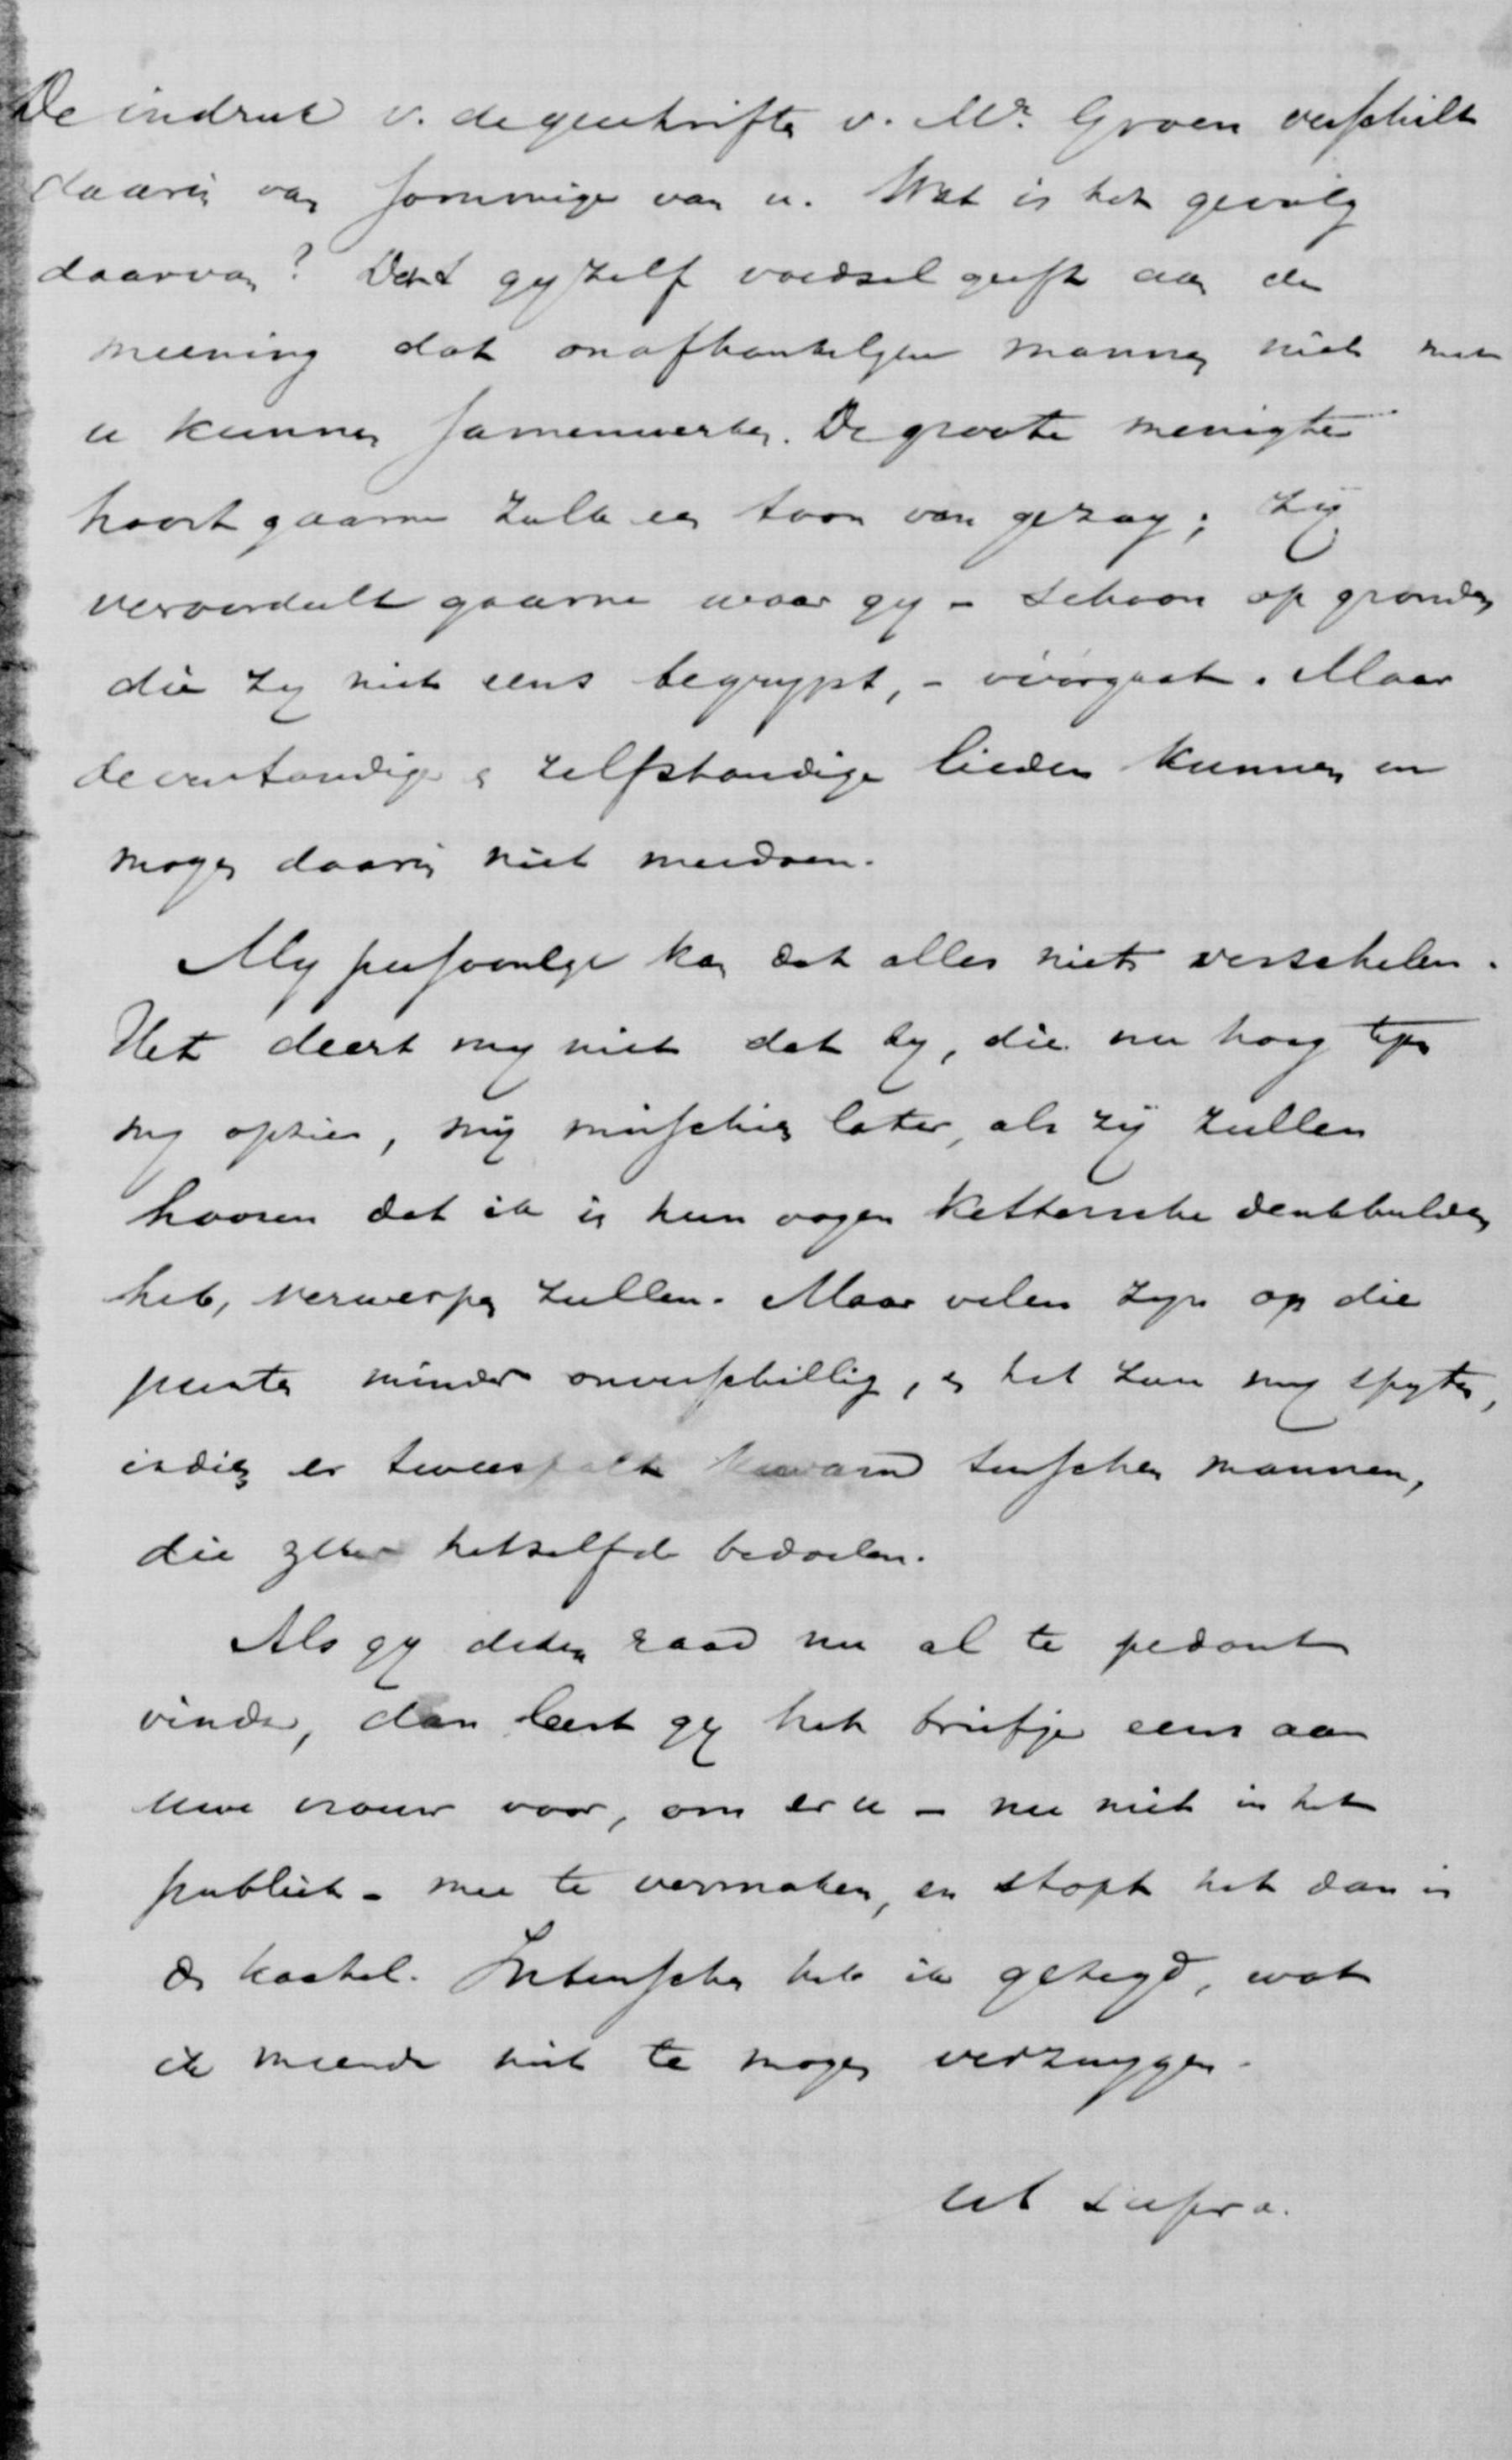 De indruk v. de geschriften v. Mr. Groen verschilt
daarin van sommige van u. Wat is het gevolg
daarvan? Dat gy zelf voedsel geeft aan de
meening dat onafhankelyke mannen niet met
u kunnen samenwerken. De groote menigte
hoort gaarne zulk een toon van gezag; zy
veroordeelt gaarne waar gy - schoon op gronden
die zy niet eens begrypt, - voorgaat. Maar
de verstandige en zelfstandige lieden kunnen en
mogen daarin niet meedoen.
My persoonlyk kan dat alles niets verschelen.
Het deert my niet dat zy, die nu hoog tegen
my opzien, my misschien later, als zy zullen
hooren dat ik in hun oogen kettersche denkbeelden
heb, verwerpen zullen. Maar velen zyn op die
punten minder onverschillig, en het zou my spyten,
indien er tweespalt kwam tusschen mannen,
die hetzelfde bedoelen.
Als gy dezen raad nu al te pedant
vindt, dan leest gy het briefje eens aan
uwe vrouw voor, om er u - nu niet in het
publiek - mee te vermaken, en stopt het dan in
de kachel. Intusschen heb ik gezegd, wat
ik meende niet te mogen verzwygen.
Ut supra.